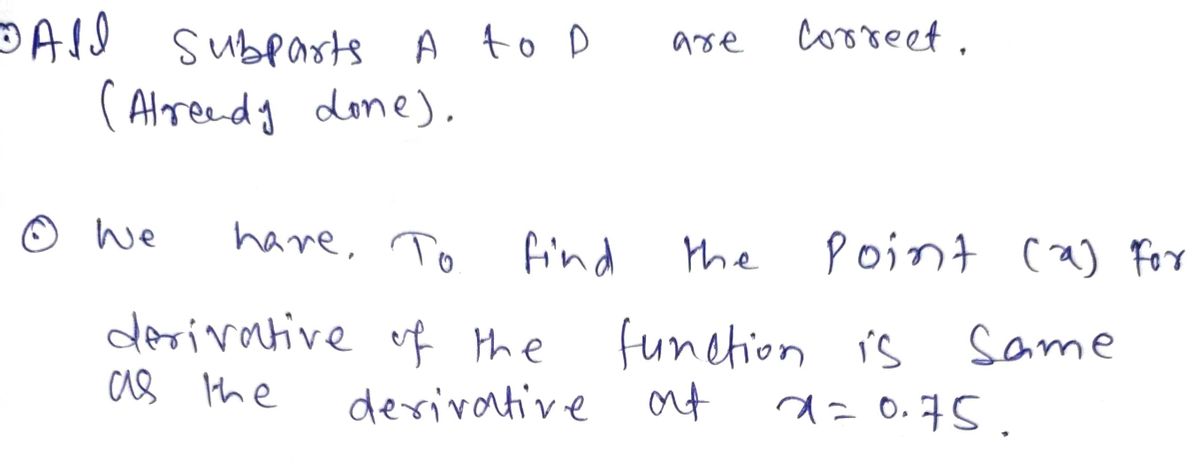 ⊙ All Subparts A to D are Correct.
(Already done).
⊙ We have. To find the Point (x) For
derivative of the function is Same
as the derivative at x = 0.75.